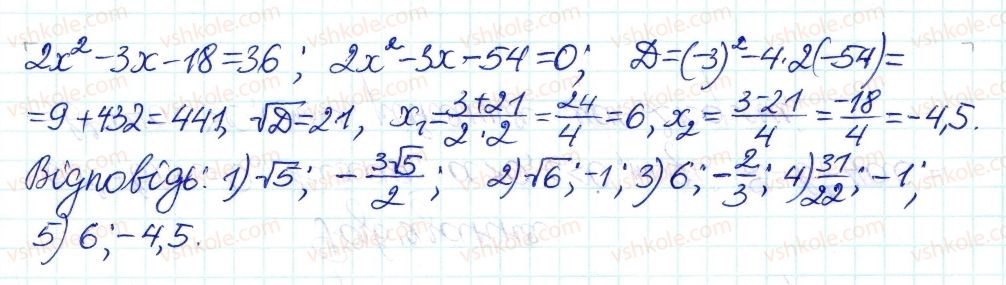 2x² - 3x - 18 = 36; 2x² - 3x - 54 = 0; D = (-3)² - 4·2(-54) =
= 9 + 432 = 441, √D = 21, x₁ = (3+21)/(2·2) = 24/4 = 6, x₂ = (3-21)/4 = -18/4 = -4,5.
Відповідь: 1) √5; -(3√5)/2; 2) √6; -1; 3) 6; -2/3; 4) 31/22; -1;
5) 6; -4,5.